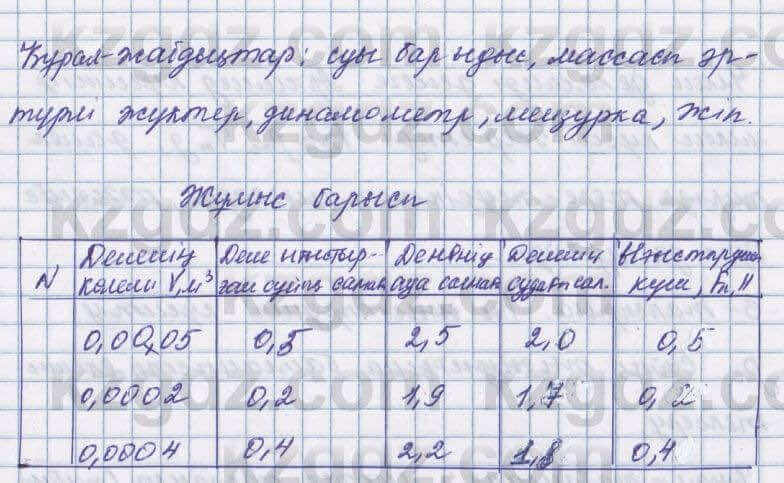 Құрал-жабдықтар: суы бар ыдыс, массасы әр-
түрлі жүктер, динамометр, мензурка, жіп.
Жұмыс барысы
N | Дененің көлемі V, м³ | Дене ығыстыр- ған сұйық салмағы | Дененің ауа салмағы | Дененің судағы сал. | Ығыстырушы күш, Fа, Н
0,0005 | 0,5 | 2,5 | 2,0 | 0,5
0,0002 | 0,2 | 1,9 | 1,7 | 0,2
0,0004 | 0,4 | 2,2 | 1,8 | 0,4
kzgdz.com